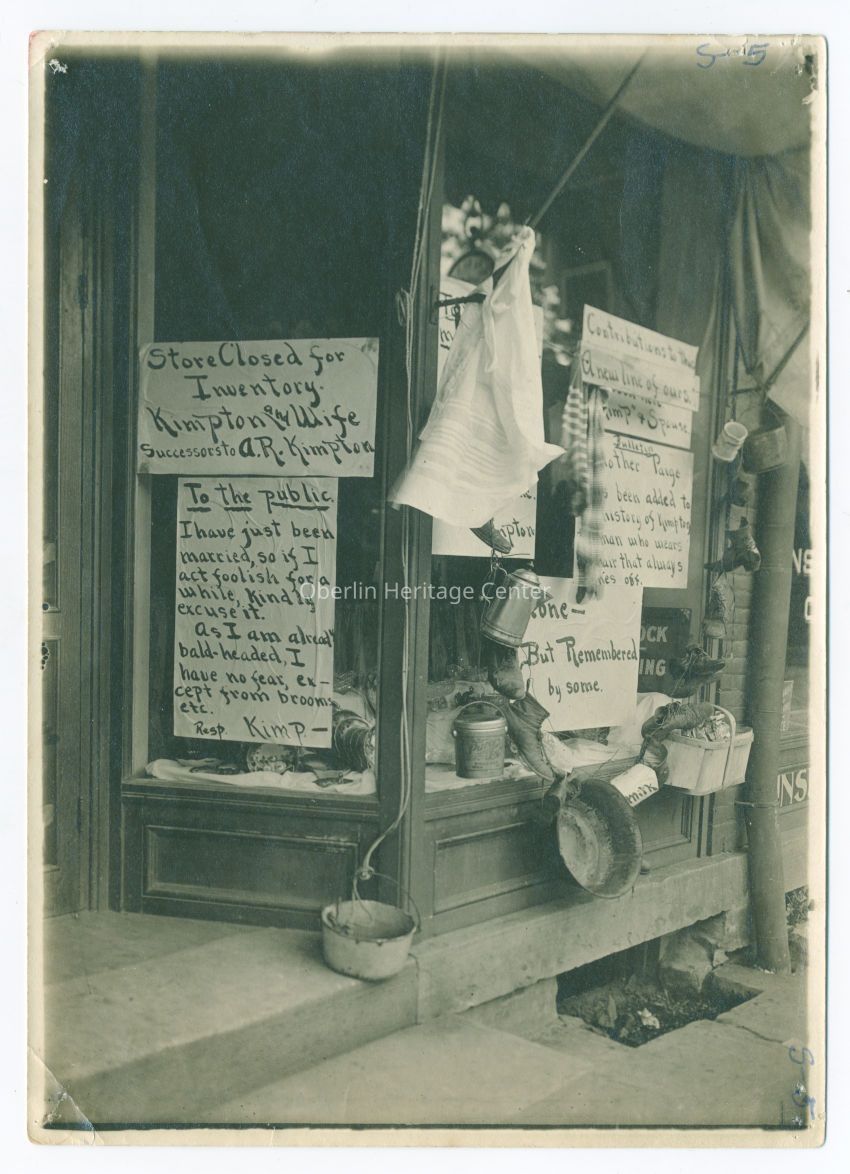 S-5
Store Closed for
Inventory.
Kimpton and Wife
Successors to A.R. Kimpton
To the public.
I have just been
married, so if I
act foolish for a
while, kindly
excuse it.
As I am alread
bald-headed, I
have no fear, ex-
cept from brooms
etc.
Resp. Kimp-
To
mpton
Contributions to
A new line of ours."
Kimp" & Spouse
Bulletin
other Paige
s been added to
history of Kimpton
man who wears
hair that always
es off.
one-
But Remembered
by some.
OCK
ING
NS
UNS
Oberlin Heritage Center
S-5